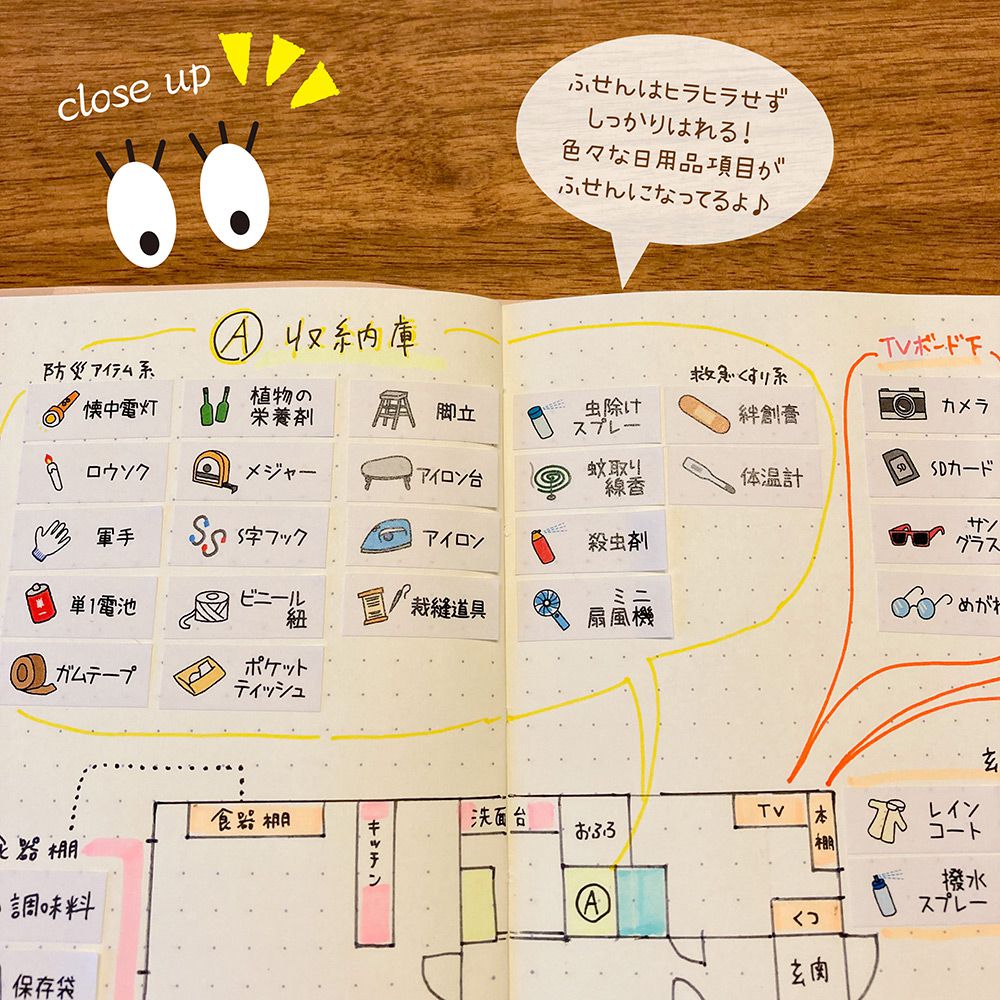 close up
ふせんはヒラヒラせず
しっかりはれる!
色々な日用品項目が
ふせんになってるよ♪
Ⓐ 収納庫
防災アイテム系
懐中電灯
ロウソク
軍手
単1電池
単一
ガムテープ
植物の
栄養剤
メジャー
S字フック
ビニール
紐
ポケット
ティッシュ
脚立
アイロン台
アイロン
裁縫道具
虫除け
スプレー
蚊取り
線香
殺虫剤
ミニ
扇風機
救急くすり系
絆創膏
体温計
TVボード下
カメラ
SDカード
SD
サン
グラス
めがね
玄
レイン
コート
撥水
スプレー
食器棚
調味料
保存袋
食器棚
キッチン
洗面台
おふろ
Ⓐ
TV
本棚
くつ
玄関